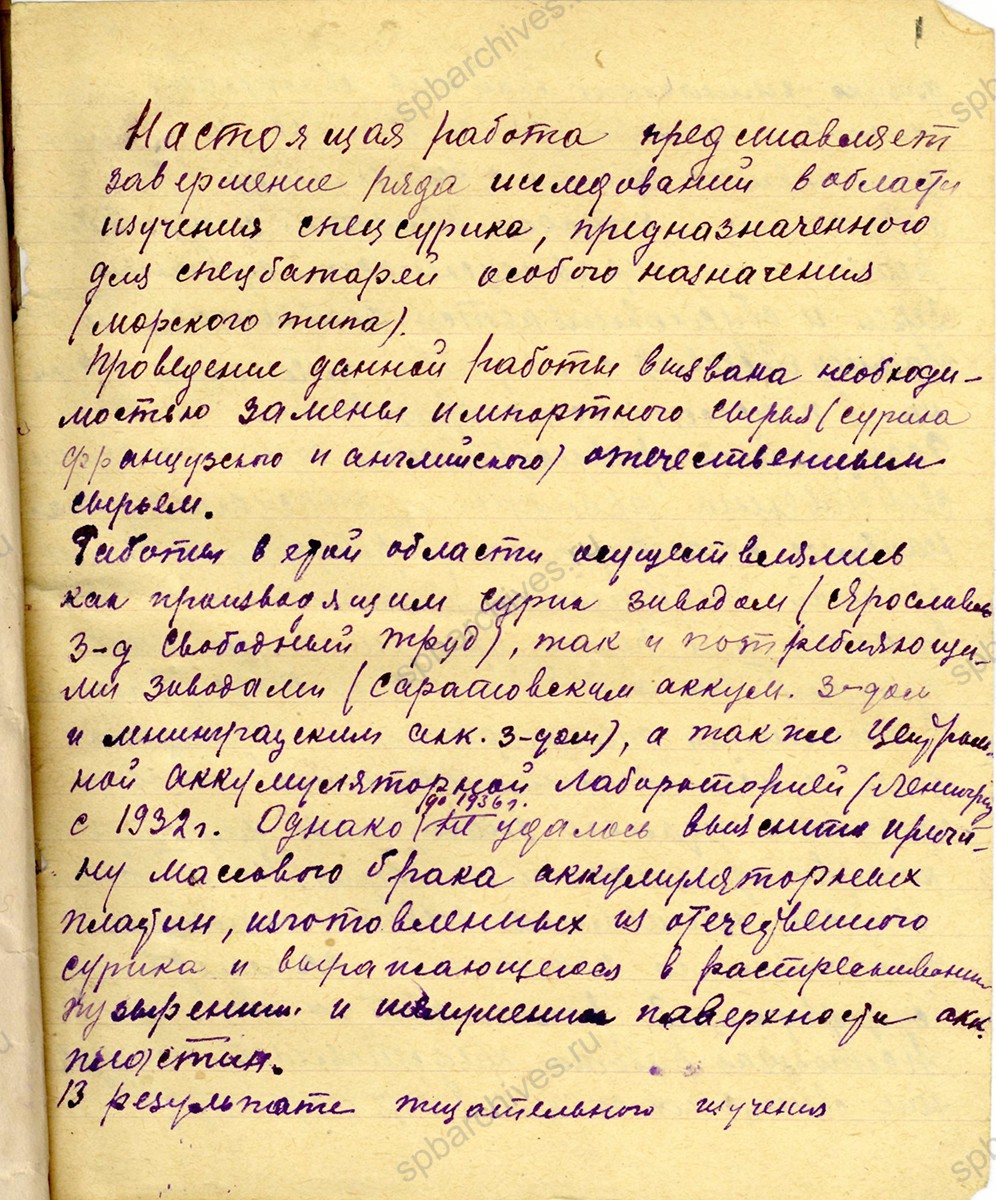 1
Настоящая работа представляет
завершение ряда исследований в области
изучения спецсурика, предназначенного
для спецбатарей особого назначения
(морского типа).
Проведение данной работы вызвана необходи-
мостью замены импортного сырья (сурика
французского и английского) отечественным
сырьем.
Работы в этой области осуществлялись
как производящим сурик заводом (Ярославль
з-д Свободный труд), так и потребляющи-
ми заводами (Саратовским аккум. з-дом
и Ленинградским акк. з-дом), а также Централь-
ной аккумуляторной лабораторией (Ленинград)
до 1936 г.
с 1932 г. Однако не удалось выяснить причи-
ну массового брака аккумуляторных
пластин, изготовленных из отечественного
сурика и выражающегося в растрескивании
пузырении и поверхности акк.
пластин.
В результате тщательного изучения
spbarchives.ru